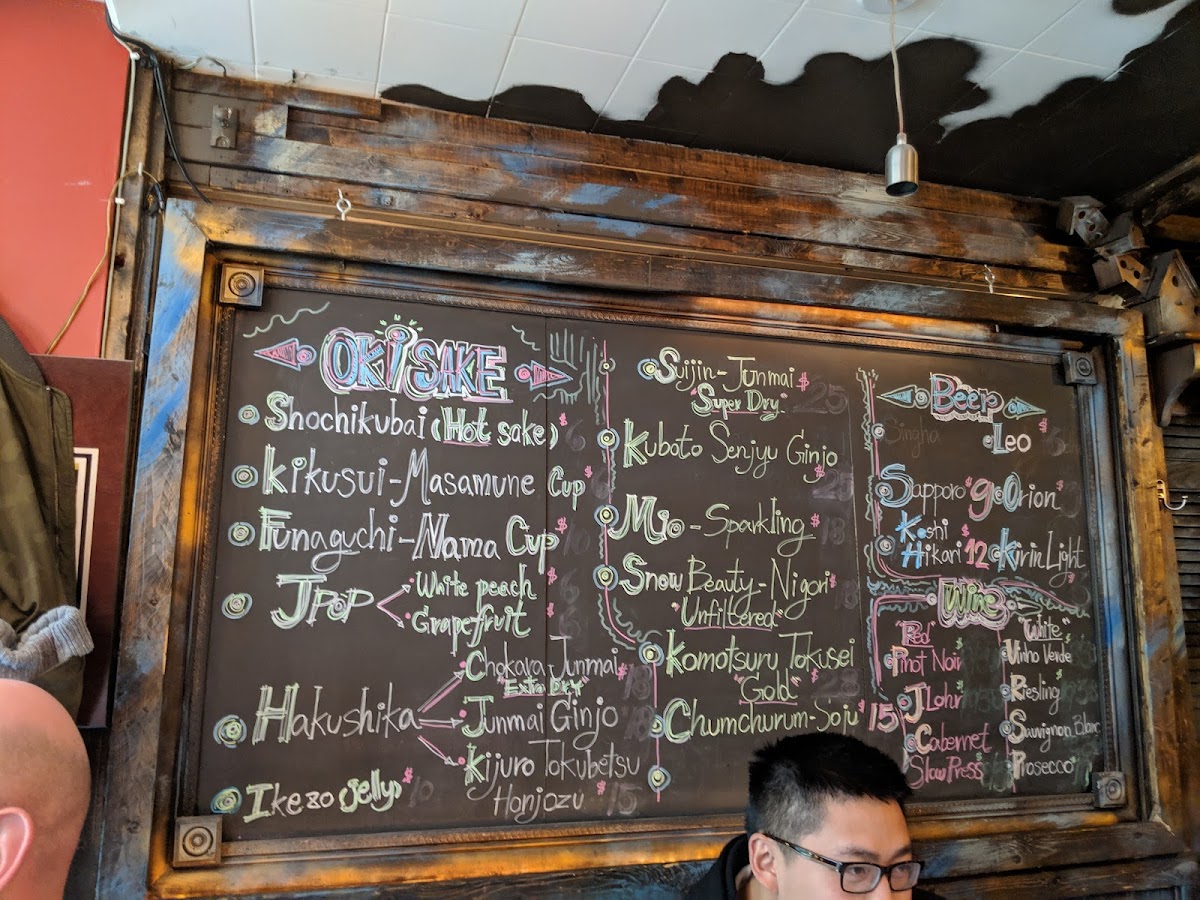 OKI SAKE
Shochikubai (Hot sake) $6
Kikusui-Masamune Cup $
Funaguchi-Nama Cup $10
JPOP
White peach $6
Grapefruit $
Hakushika
Chokara Junmai $
"Extra Dry"
Junmai Ginjo $18
Kijuro Tokubetsu
Honjozu $15
Ikezo (Jelly) $10
Suijin-Junmai $25
"Super Dry"
Kuboto Senjyu Ginjo
$
Mio-Sparkling $18
Snow Beauty-Nigori $
"Unfiltered"
Komotsuru Tokusei
"Gold" $
Chumchurum-Soju $15
Beer
Singha
Leo $
Sapporo $9 Orion $
Koshi
Hikari $12 Kirin Light $
Wine
"Red"
Pinot Noir
J Lohr
Cabernet
Slow Press
"White"
Vinho Verde
Riesling
Sauvignon Blanc
Prosecco